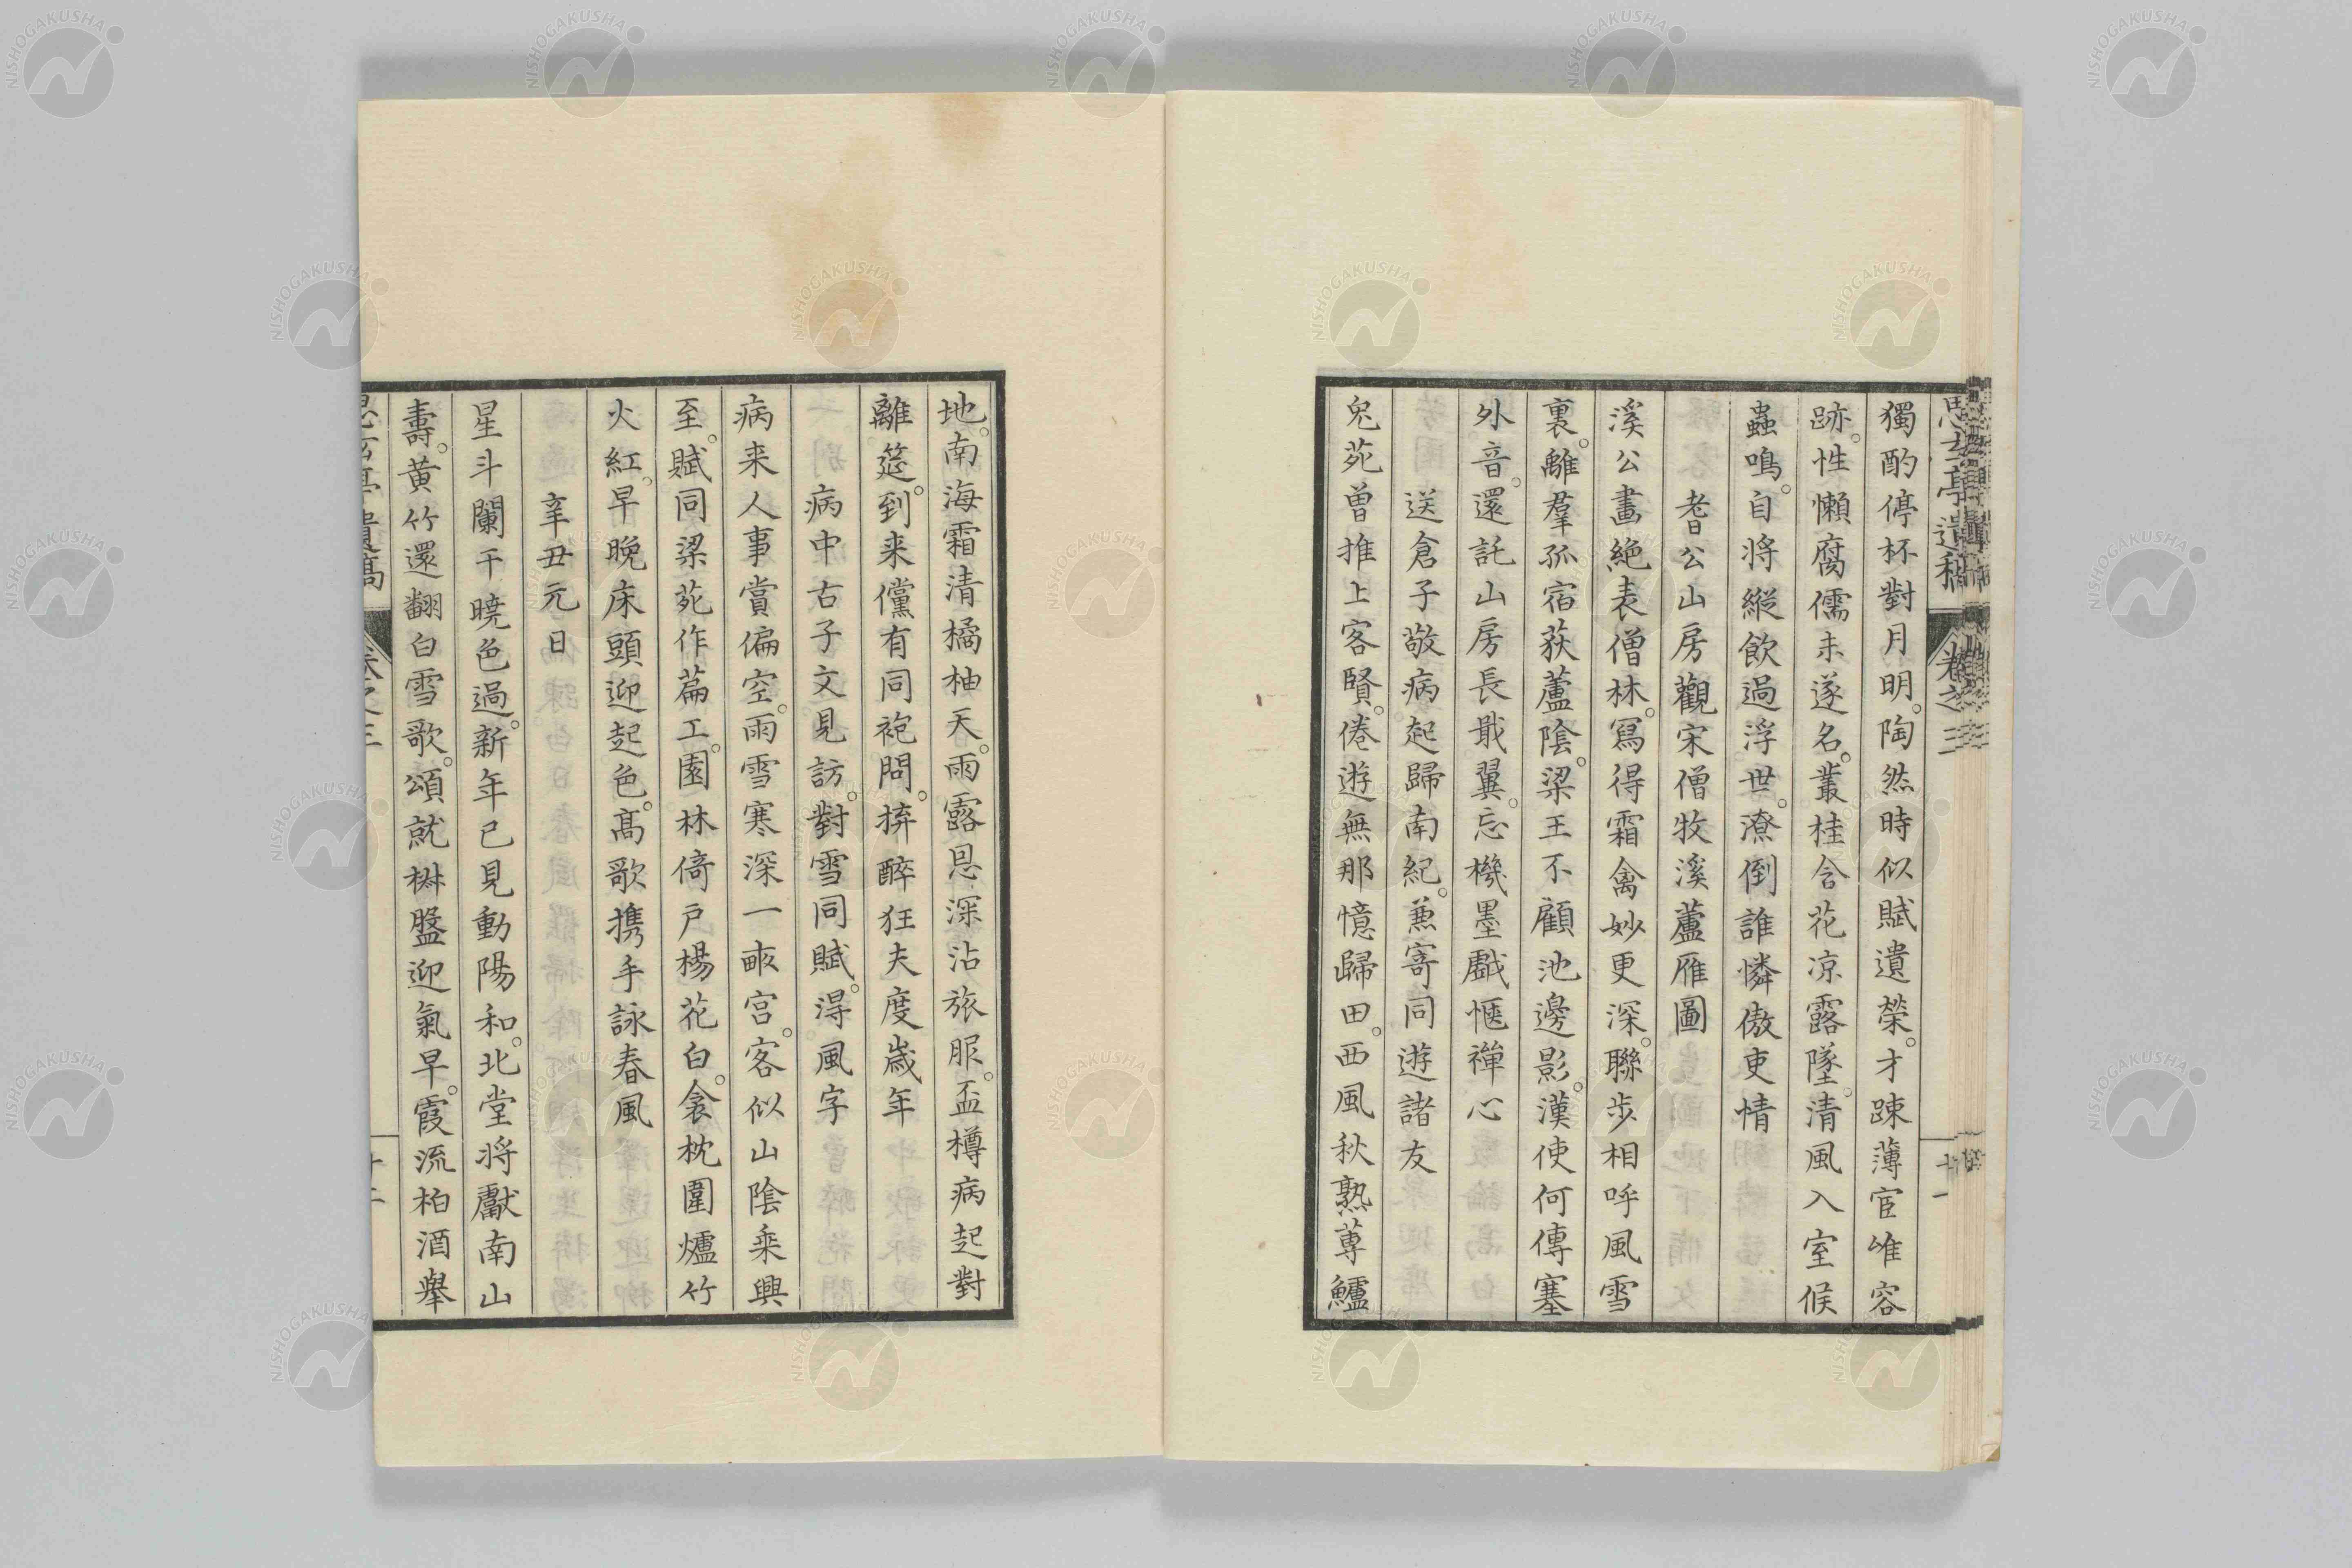 獨酌停杯對月明。陶然時似賦遺榮。才踈薄宦唯容
跡。性懶腐儒未遂名。叢桂含花凉露墜。清風入室候
蟲鳴。自將縱飲過浮世。潦倒誰憐傲吏情
耆公山房觀宋僧牧溪蘆雁圖
溪公畫絶表僧林。寫得霜禽妙更深。聯歩相呼風雪
裏。離羣孤宿荻蘆陰。梁王不顧池邊影。漢使何傳塞
外音。還託山房長戢翼。忘機墨戲愜禪心
送倉子敬病起歸南紀。兼寄同遊諸友
兔苑曽推上客賢。倦遊無那憶歸田。西風秋熟蓴鱸
地。南海霜清橘柚天。雨露恩深沾旅服。盃樽病起對
離筵。到来儻有同袍問。捹醉狂夫度歳年
病中古子文見訪。對雪同賦。得風字
病来人事賞偏空。雨雪寒深一畝宮。客似山陰乘興
至。賦同梁苑作篇工。園林倚戸楊花白。衾枕圍爐竹
火紅。早晩床頭迎起色。髙歌携手詠春風
辛丑元日
星斗闌干曉色過。新年已見動陽和。北堂将獻南山
壽。黄竹還翻白雪歌。頌就椒盤迎氣早。霞流柏酒舉
思玄亭遺稿
卷之三
十一
NISHOGAKUSHA